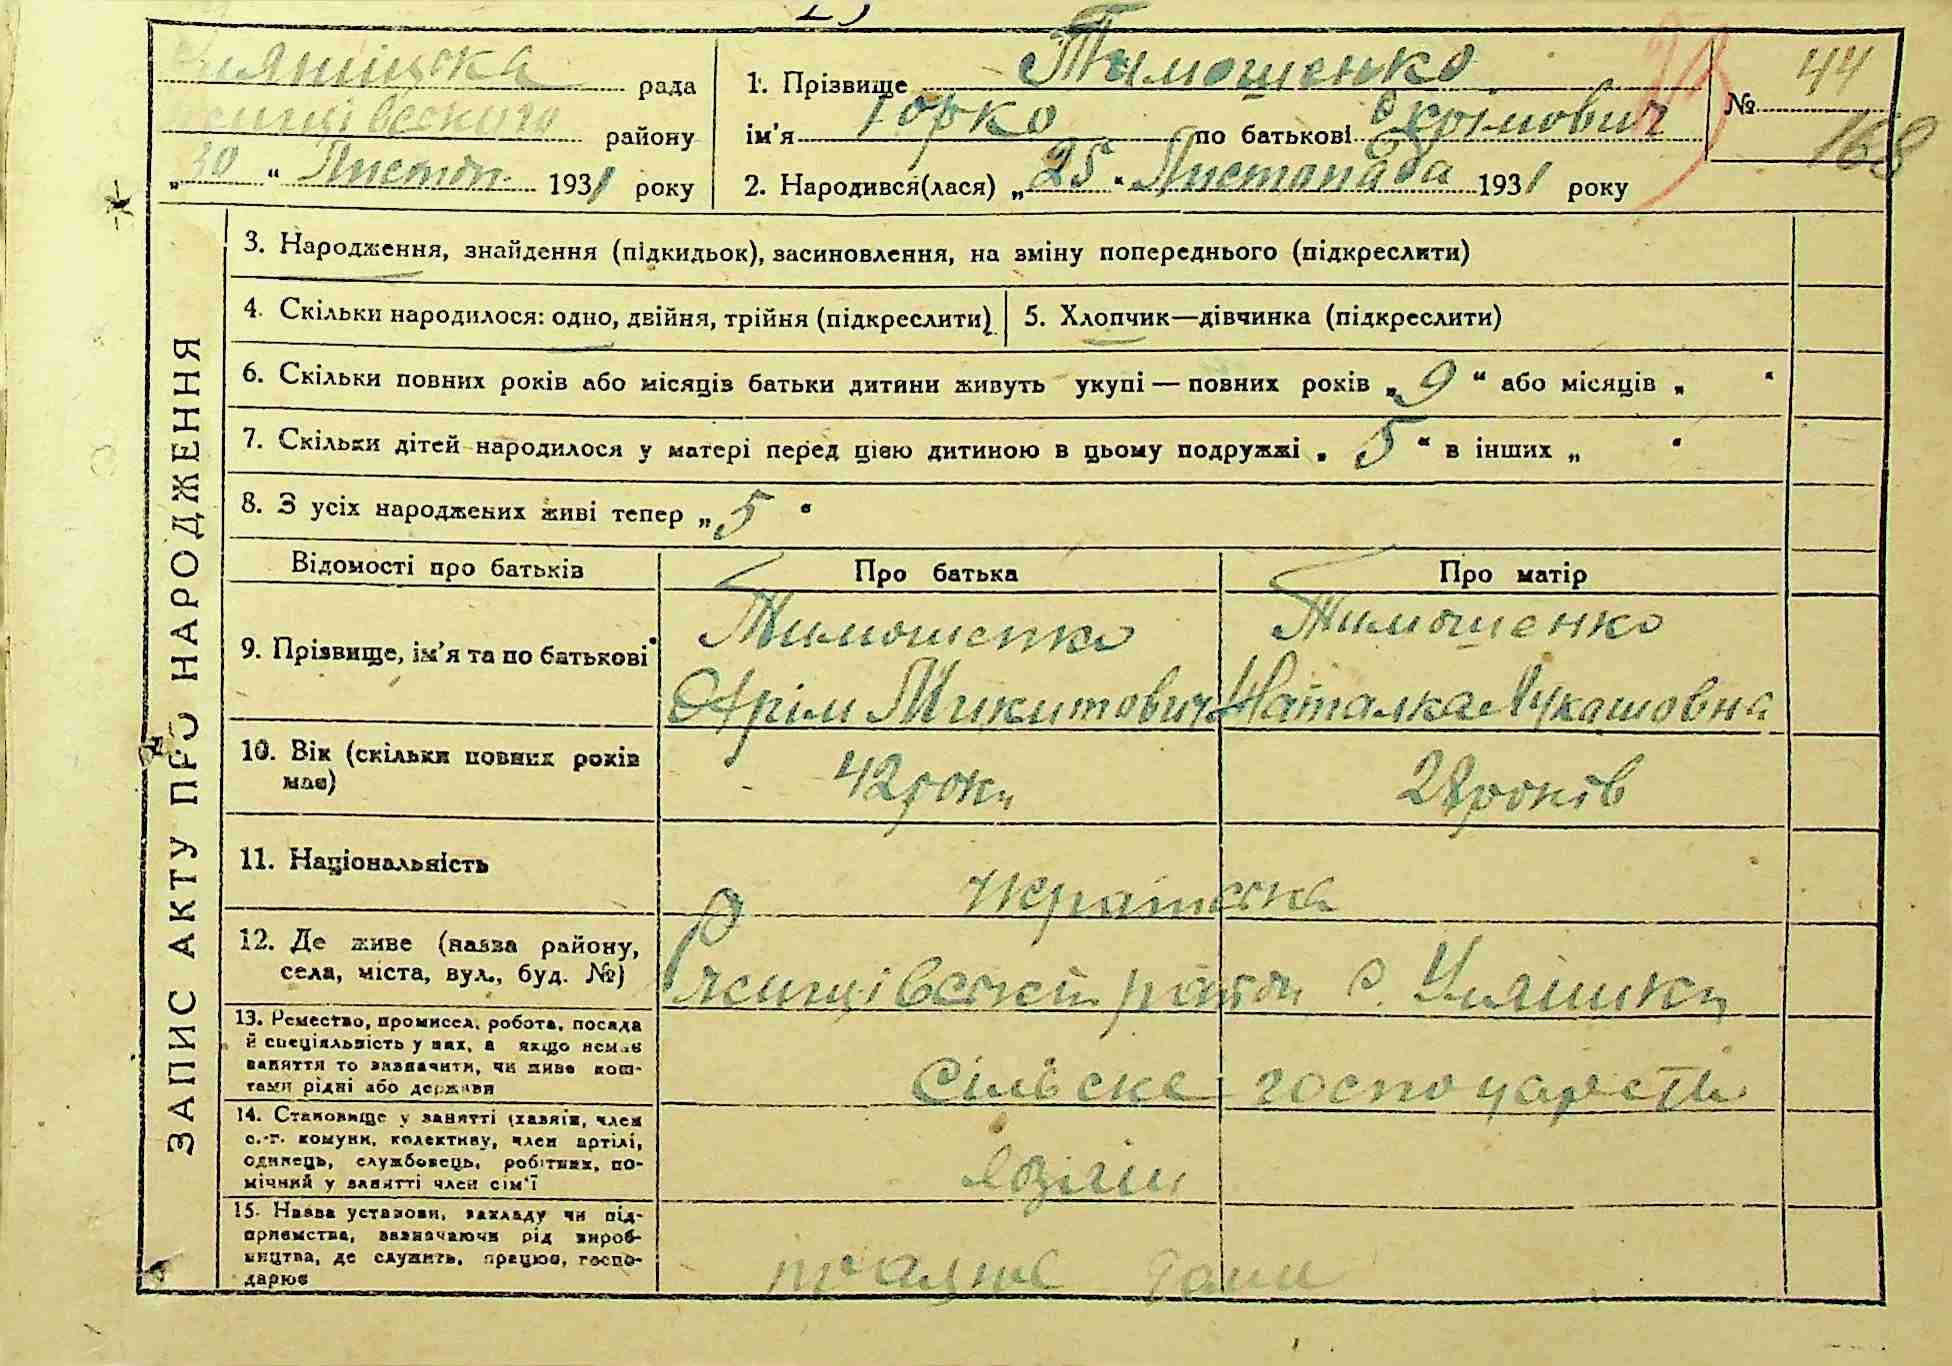 рада
району
„30“ Листоп. 1931 року
1. Прізвище Тимошенко
ім'я Юрко по батькові Охрімович
2. Народився(лася) „25“ Листопада 1931 року
№ 44
168
ЗАПИС АКТУ ПРО НАРОДЖЕННЯ
3. Народження, знайдення (підкидьок), засиновлення, на зміну попереднього (підкреслити)
4. Скільки народилося: одно, двійня, трійня (підкреслити)
5. Хлопчик—дівчинка (підкреслити)
6. Скільки повних років або місяців батьки дитини живуть укупі — повних років „9“ або місяців „ “
7. Скільки дітей народилося у матері перед цією дитиною в цьому подружжі „5“ в інших „ “
8. З усіх народжених живі тепер „5“
Відомості про батьків
Про батька
Про матір
9. Прізвище, ім'я та по батькові
Тимошенко
Охрім Микитович
Тимошенко
Наталка Лукашовна
10. Вік (скільки повних років має)
42 роки
28 років
11. Національність
Українська
12. Де живе (назва району,
села, міста, вул., буд. №)
район с. Уляники
13. Ремество, промисел, робота, посада
й спеціяльність у них, а якщо немає
заняття то зазначити, чи живе кош-
тами рідні або держави
Сільске господарство
14. Становище у занятті (хазяїн, член
с.-г. комуни, колективу, член артілі,
одинець, службовець, робітник, по-
мічний у занятті член сім'ї
15. Назва установи, закладу чи під-
приємства, зазначаючи рід вироб-
ництва, де служить, працює, госпо-
дарює